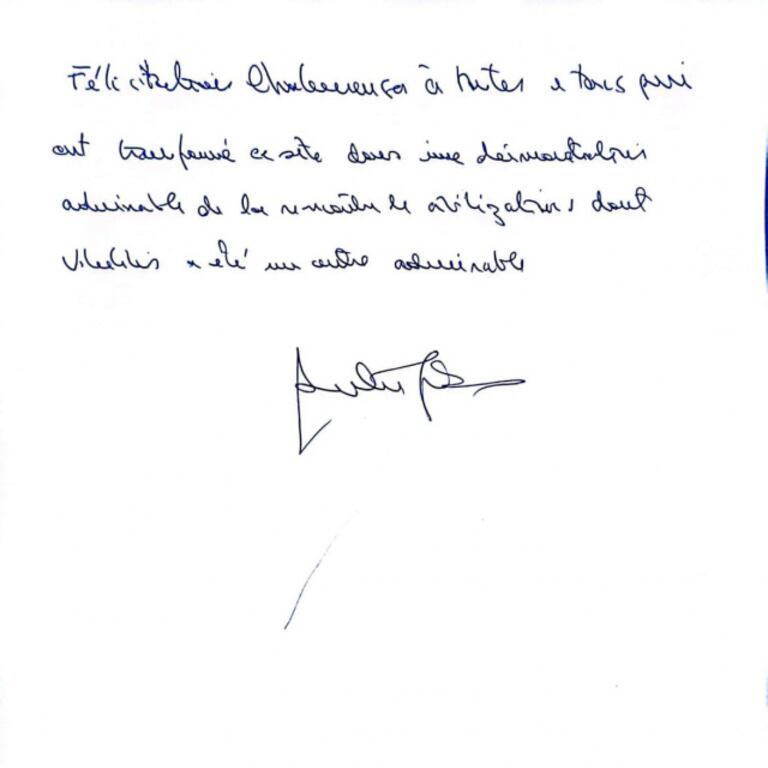 Félicitations chaleureuses à toutes et tous qui
ont transformé ce site dans une démonstration
admirable de la rencontre de civilisations dont
a été un centre admirable